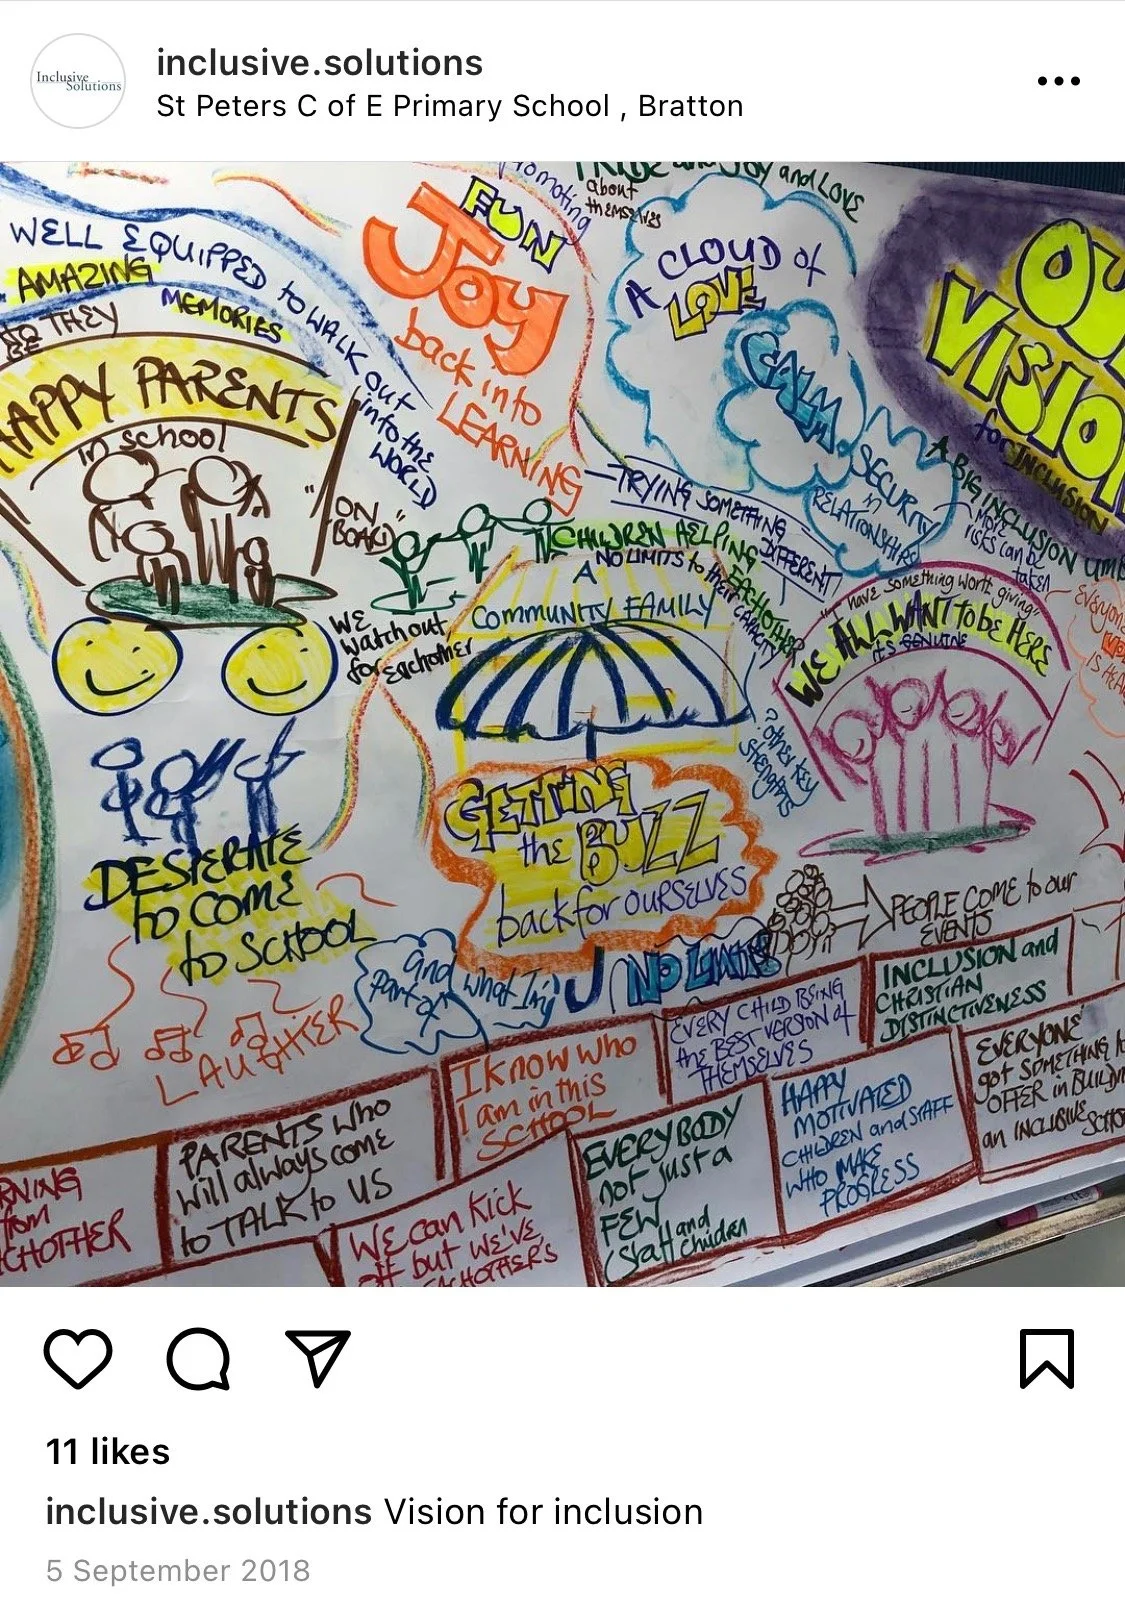 Inclusive
Solutions
inclusive.solutions
St Peters C of E Primary School , Bratton
PRIDE and JOY and LOVE
Promoting
about
themselves
FUN
JOY
back into
LEARNING
WELL EQUIPPED to WALK OUT
into the
WORLD
AMAZING
MEMORIES
BE THEY
HAPPY PARENTS
in school
"ON
BOARD"
A CLOUD of
LOVE
CALM.
SECURITY
in
RELATIONSHIPS
OUR
VISION
for INCLUSION
A BIG INCLUSION UMB
MORE
risks can be
taken
TRYING SOMETHING
DIFFERENT
CHILDREN HELPING
EACHOTHER
NO LIMITS to their CAPACITY
A
COMMUNITY FAMILY
WE
watch out
for eachother
"have something worth giving"
WE ALL WANT to be HERE
its GENUINE
EVERYONE
IS HEA
? other key
strengths
GETTING
the BUZZ
back for OURSELVES
DESPERATE
to COME
to SCHOOL
LAUGHTER
and
part of
what I'm
NO LIMITS!
PEOPLE COME to our
EVENTS
INCLUSION and
CHRISTIAN
DISTINCTIVENESS
EVERY CHILD BEING
the BEST VERSION of
THEMSELVES
I KNOW WHO
I am in this
SCHOOL
EVERYONE
got SOMETHING to
OFFER in BUILDIN
an INCLUSIVE SCHO
HAPPY
MOTIVATED
CHILDREN and STAFF
WHO MAKE
PROGRESS
EVERYBODY
not just a
FEW
(staff and
children
PARENTS who
will always come
to TALK to US
RNING
from
CHOTHER
WE can kick
off but WE'VE
EACHOTHERS
11 likes
inclusive.solutions Vision for inclusion
5 September 2018